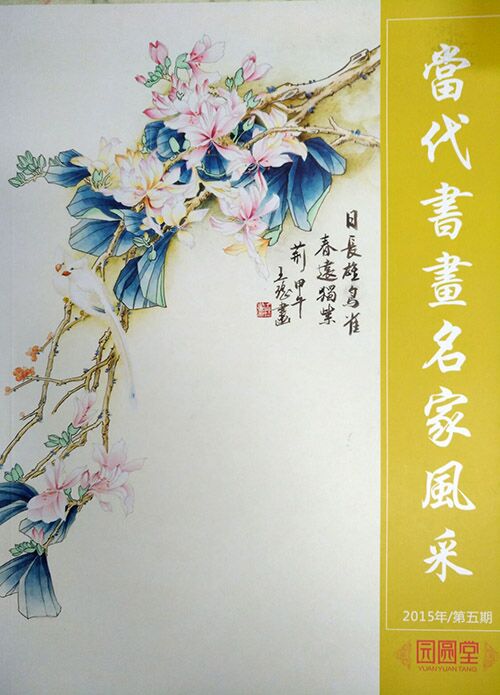 當代書畫名家風采
日長唯鳥雀
春遠獨柴
荊 甲午
王 畫
2015年/第五期
园圆堂
YUANYUANTANG